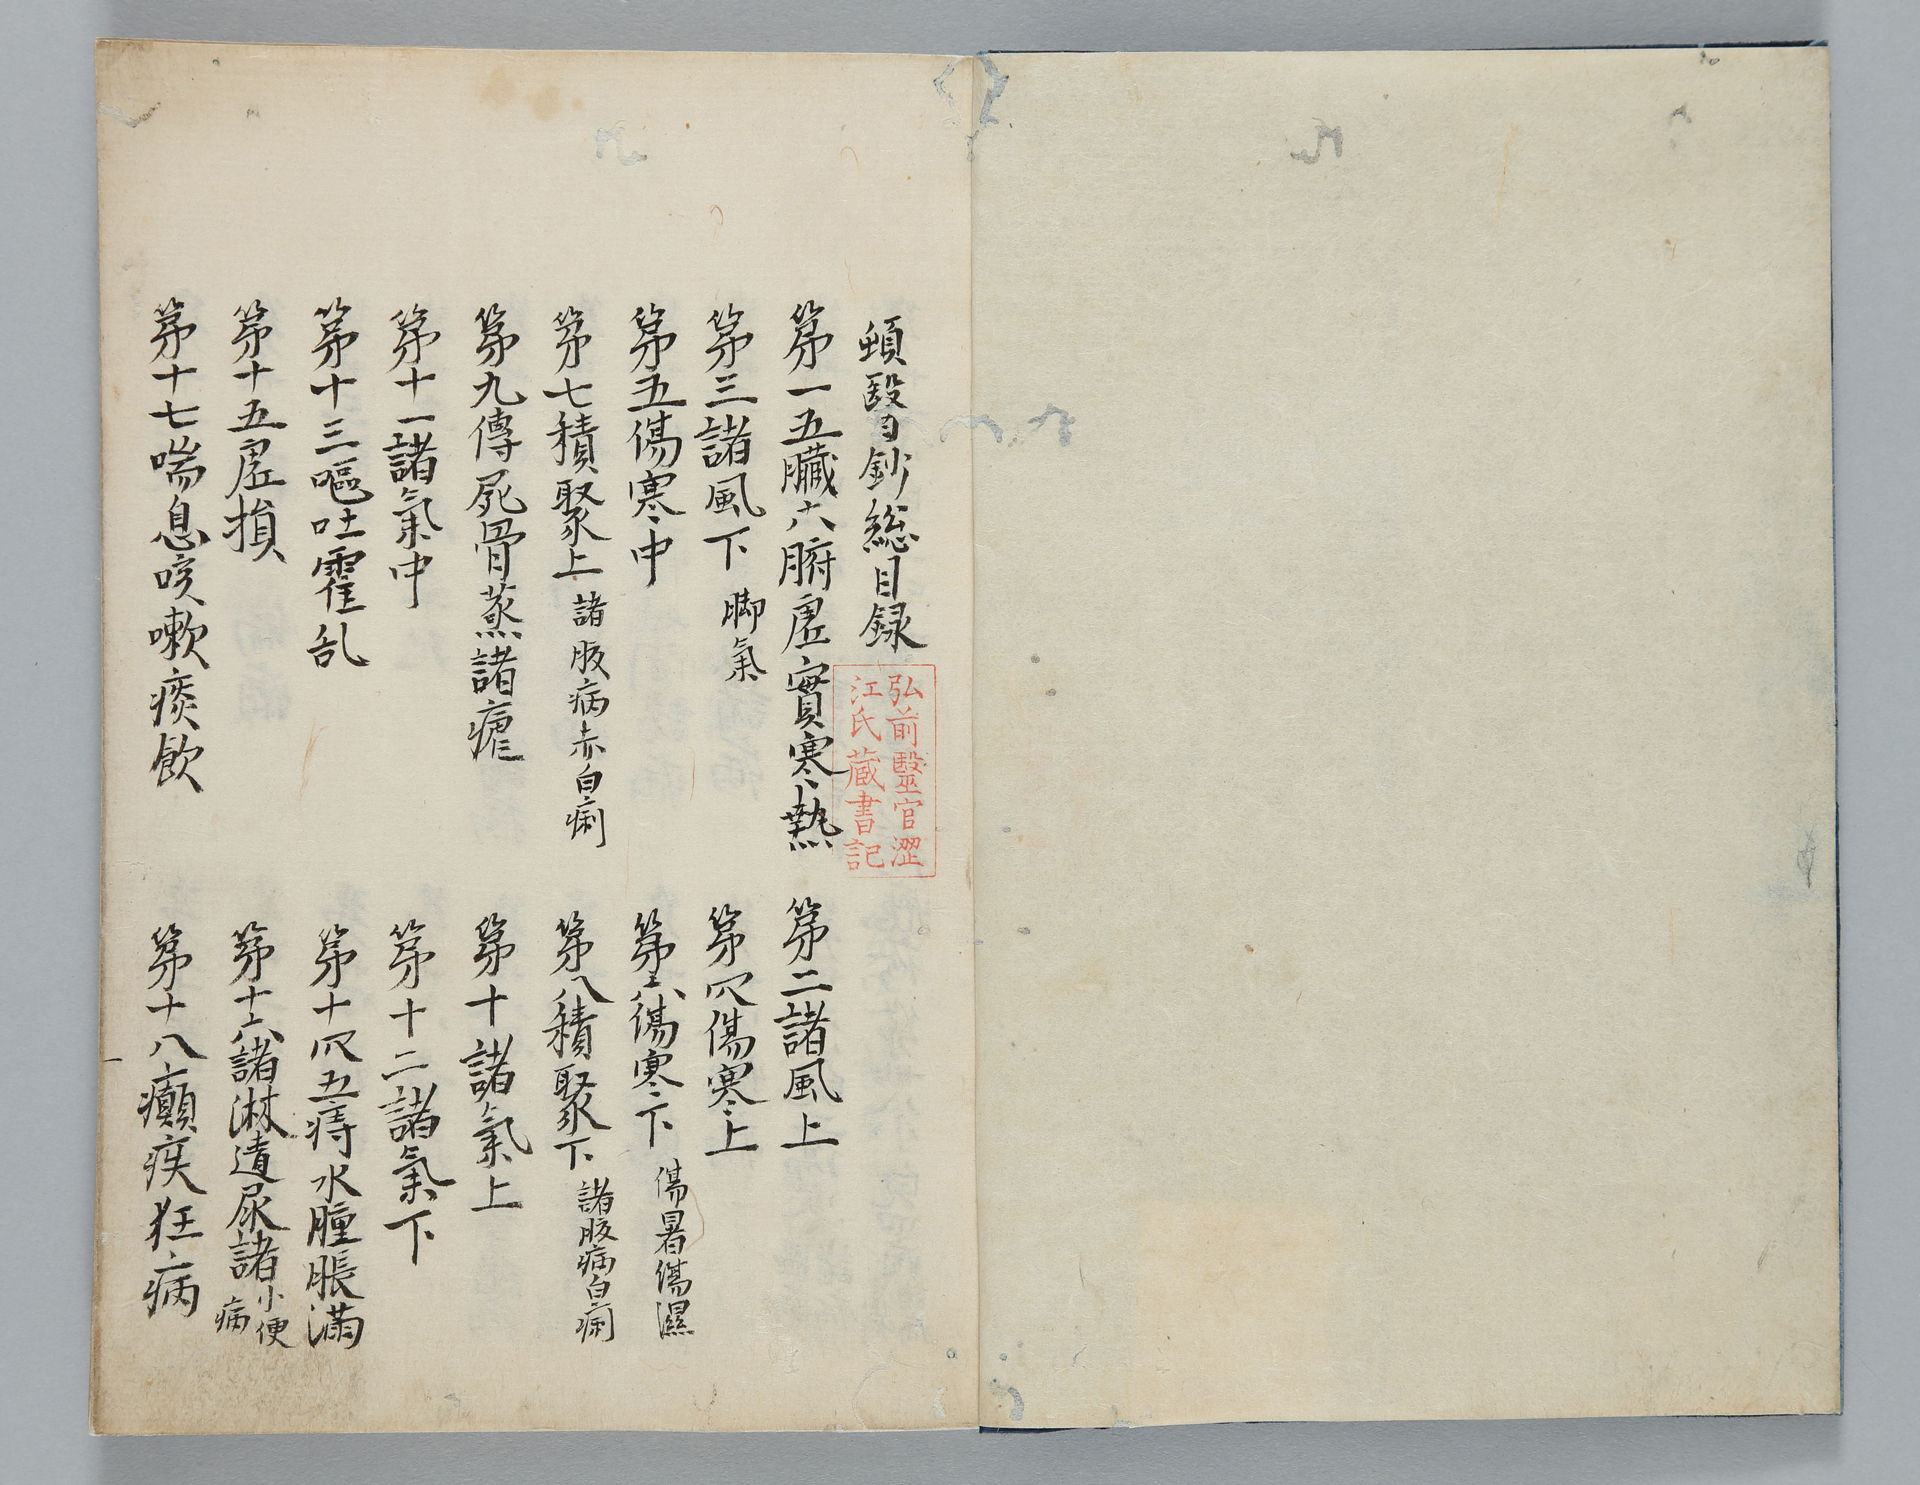 頓醫鈔総目録
弘前毉官澀
江氏藏書記
第一五臓六腑虚實寒熱
第二諸風上
第三諸風下 脚氣
第四傷寒上
第五傷寒中
第六傷寒下 傷暑傷濕
第七積聚上 諸腹病赤白痢
第八積聚下 諸腹病白痢
第九傳死骨蒸諸瘧
第十諸氣上
第十一諸氣中
第十二諸氣下
第十三嘔吐霍乱
第十四五痔水腫脹滿
第十五虚損
第十六諸淋遺尿諸小便病
第十七喘息咳嗽痰飲
第十八癲疾狂病